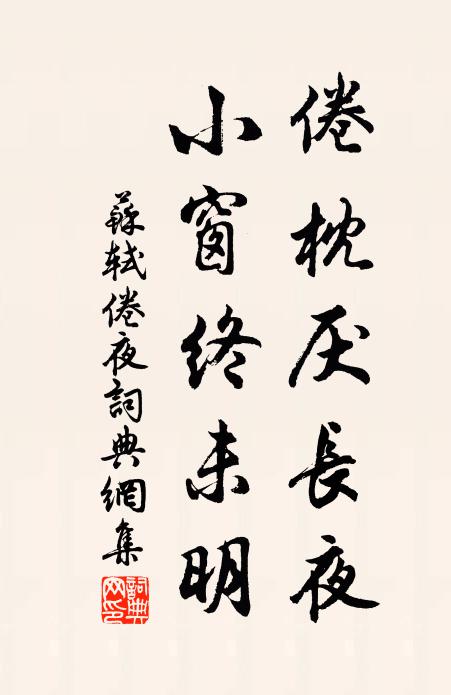 倦枕厌長夜
小窗終未明
蘇軾倦夜詞典網集
詞典網印